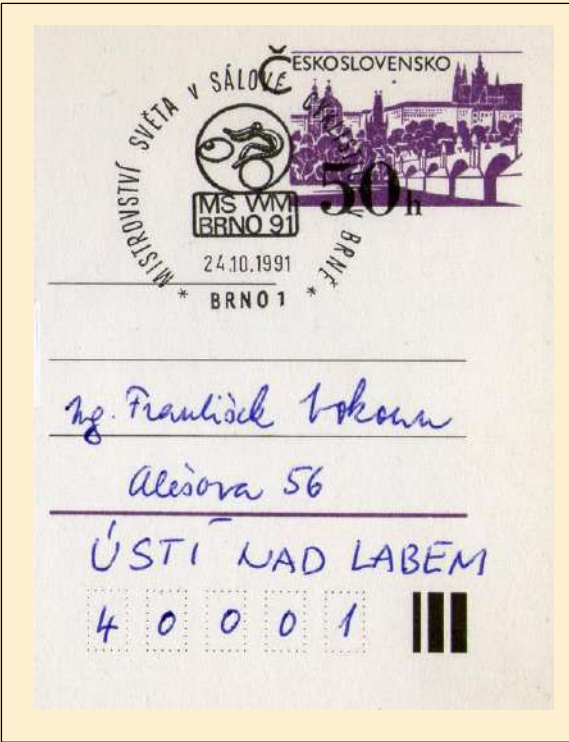 ČESKOSLOVENSKO
50h
MISTROVSTVÍ SVĚTA V SÁLOVÉ CYKLISTICE V BRNĚ
MS WM
BRNO 91
24.10.1991
* BRNO 1 *
Ing. František Vokoun
Alešova 56
ÚSTÍ NAD LABEM
40001